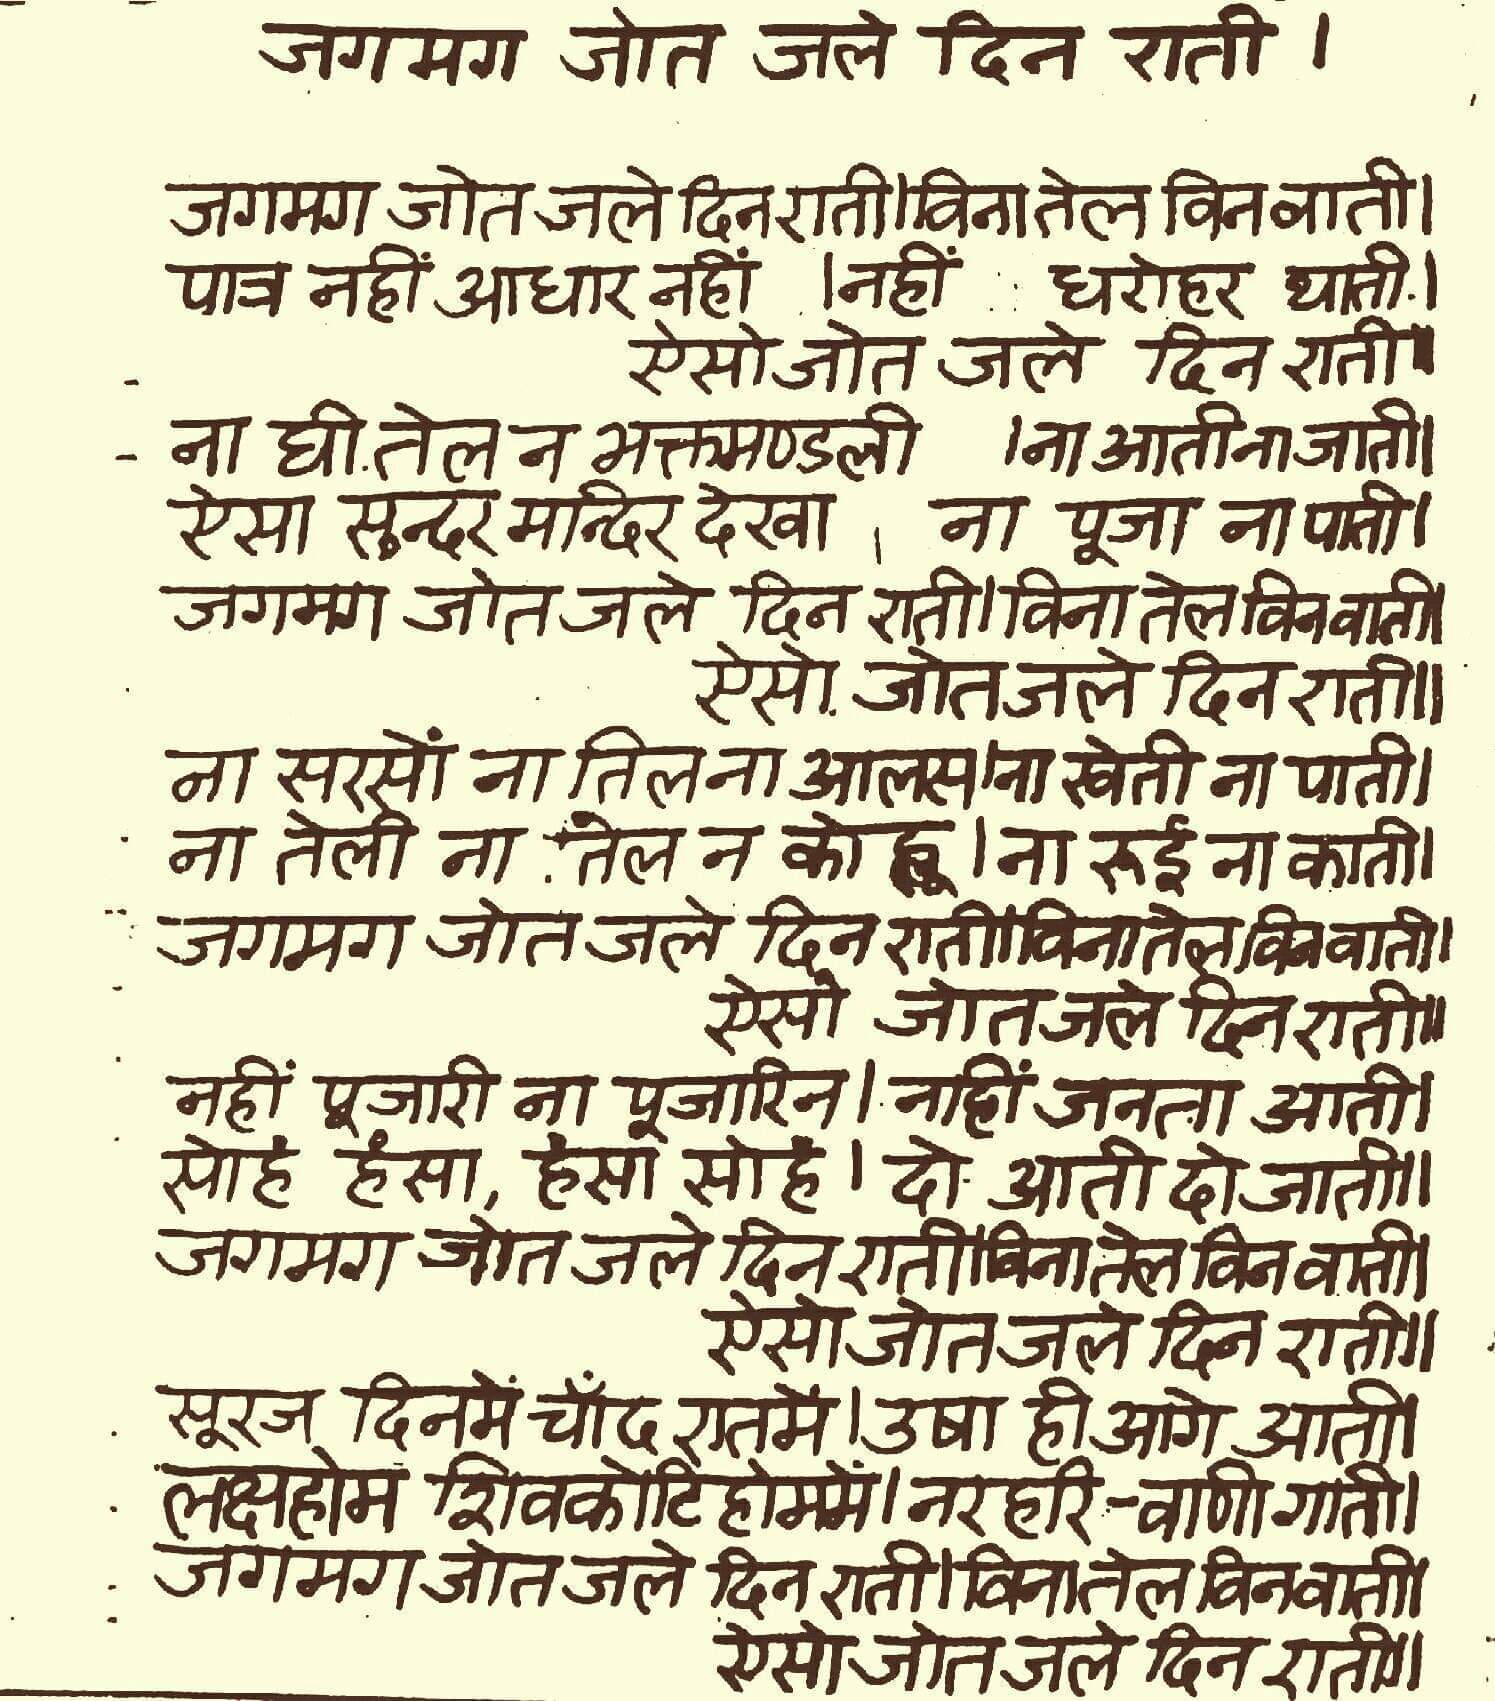 जगमग जोत जले दिन राती ।
जगमग जोत जले दिन राती। विना तेल विन वाती।
पात्र नहीं आधार नहीं । नहीं धरोहर थाती।
ऐसो जोत जले दिन राती॥
ना घी तेल न भक्तमण्डली । ना आती ना जाती।
ऐसा सुन्दर मन्दिर देखा । ना पूजा ना पाती।
जगमग जोत जले दिन राती। विना तेल विन वाती।
ऐसो जोत जले दिन राती॥
ना सरसों ना तिल ना आलस। ना खेती ना पाती।
ना तेली ना तेल न कोल्हू। ना रूई ना काती।
जगमग जोत जले दिन राती। विना तेल विन वाती।
ऐसो जोत जले दिन राती॥
नहीं पूजारी ना पूजारिन। नाहीं जनता आती।
सोहं हंसा, हंसा सोहं। दो आती दो जाती॥
जगमग जोत जले दिन राती। विना तेल विन वाती।
ऐसो जोत जले दिन राती॥
सूरज दिनमें चाँद रातमें। उषा ही आगे आती।
लक्षहोम शिवकोटि होममें। नरहरि-वाणी गाती।
जगमग जोत जले दिन राती। विना तेल विन वाती।
ऐसो जोत जले दिन राती॥